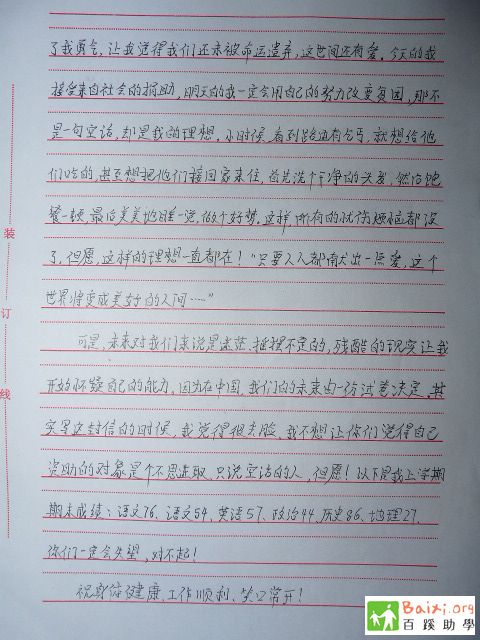 了我勇气，让我觉得我们还未被命运遗弃，这世间还有爱。今天的我
接受来自社会的捐助，明天的我一定会用自己的努力改变贫困，那不
是一句空话，却是我的理想。小时候，看到路边有乞丐，就想给他
们吃的，甚至想把他们接回家来住，首先洗个干净的头发，然后饱
餐一顿，最后美美地睡一觉，做个好梦。这样，所有的忧伤烦恼都没
了，但愿，这样的理想一直都在！“只要人人都献出一点爱，这个
世界将变成美好的人间……”
可是，未来对我们来说是迷茫、摇摆不定的，残酷的现实让我
开始怀疑自己的能力，因为在中国，我们的未来由一份试卷决定，其
实写这封信的时候，我觉得很丢脸，我不想让你们觉得自己
资助的对象是个不思进取，只说空话的人，但愿！以下是我上学期
期末成绩：语文76、语文54、英语57、政治44、历史86、地理27，
你们一定会失望，对不起！
祝身体健康、工作顺利、笑口常开！
装
订
线
Baixi.org
百蹊助學